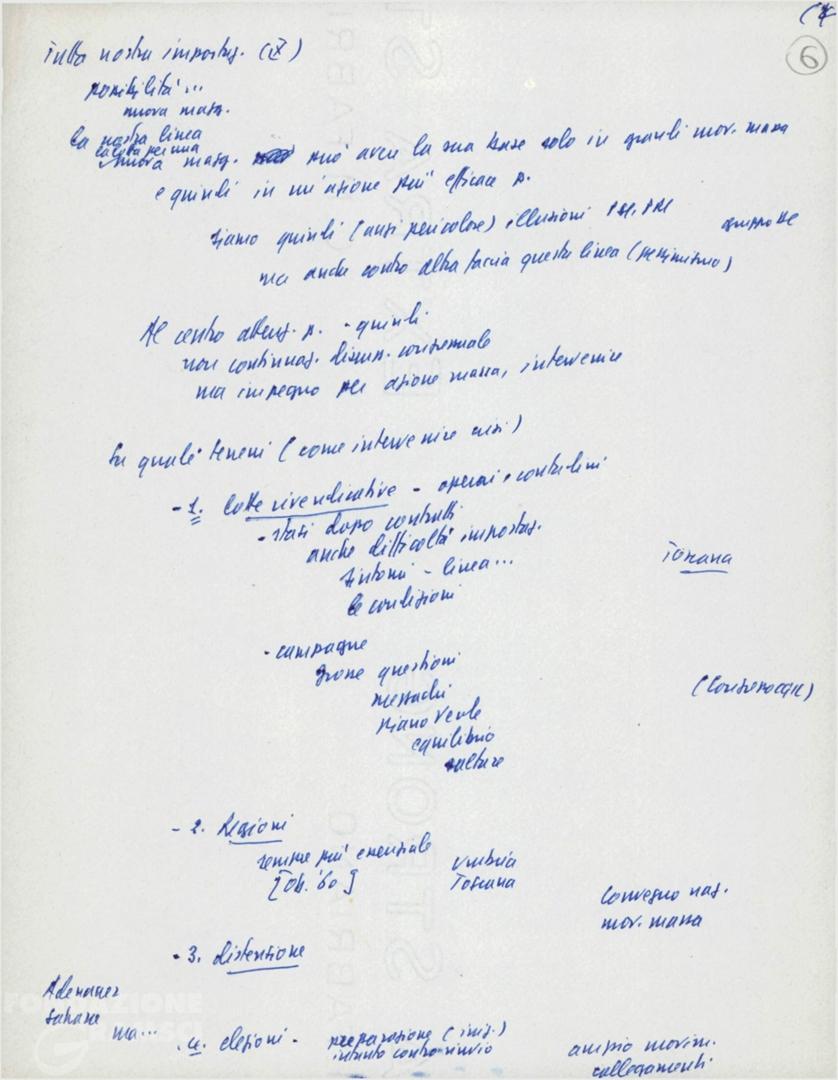 6
Tutta nostra impostaz. (IX)
possibilità...
nuova magg.
La nostra linea
lotta per una
nuova magg. può avere la sua base solo in grandi mov. massa
e quindi in un'azione più efficace p.
siamo quindi (anzi pericolose) illusioni PSI, PRI
ma anche contro altra faccia questa linea (pessimismo)
Al centro attenz. p. - quindi
non continuaz. discuss. congressuale
ma impegno per azione massa, intervenire
Su quali terreni (come intervenire crisi)
- 1. Lotte rivendicative - operai, contadini
- stasi dopo contratti
anche difficoltà impostaz.
Sintomi - linea...
le condizioni
Toscana
- campagne
grosse questioni
mezzadri
piano verde
equilibrio
culture
- 2. Regioni
sempre più essenziale
Umbria
Toscana
Convegno naz.
mov. massa
- 3. distensione
Adenauer
ma...
- 4. elezioni -
preparazione (iniz.)
intanto contro rinvio
ampio movim.
collegamenti
FONDAZIONE
GRAMSCI